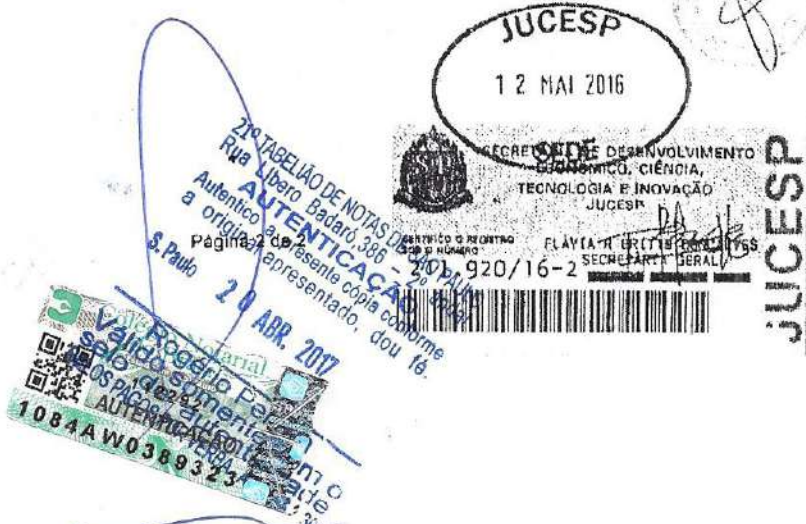 JUCESP
12 MAI 2016
SEDE
SECRETARIA DE DESENVOLVIMENTO
ECONÔMICO, CIÊNCIA,
TECNOLOGIA E INOVAÇÃO
JUCESP
CERTIFICO O REGISTRO
SOB O NÚMERO
FLÁVIA R BRITTO
SECRETÁRIA GERAL
JUCESP
21º TABELIÃO DE NOTAS
Rua Líbero Badaró, 386 - 2º
AUTENTICAÇÃO
Autentico a presente cópia conforme
a original apresentado, dou fé.
S. Paulo
20 ABR. 2017
Página 2 de 2
Notarial
Rogério
Válido somente com o
selo de autenticidade
AUTENTICAÇÃO
1084AW0389323